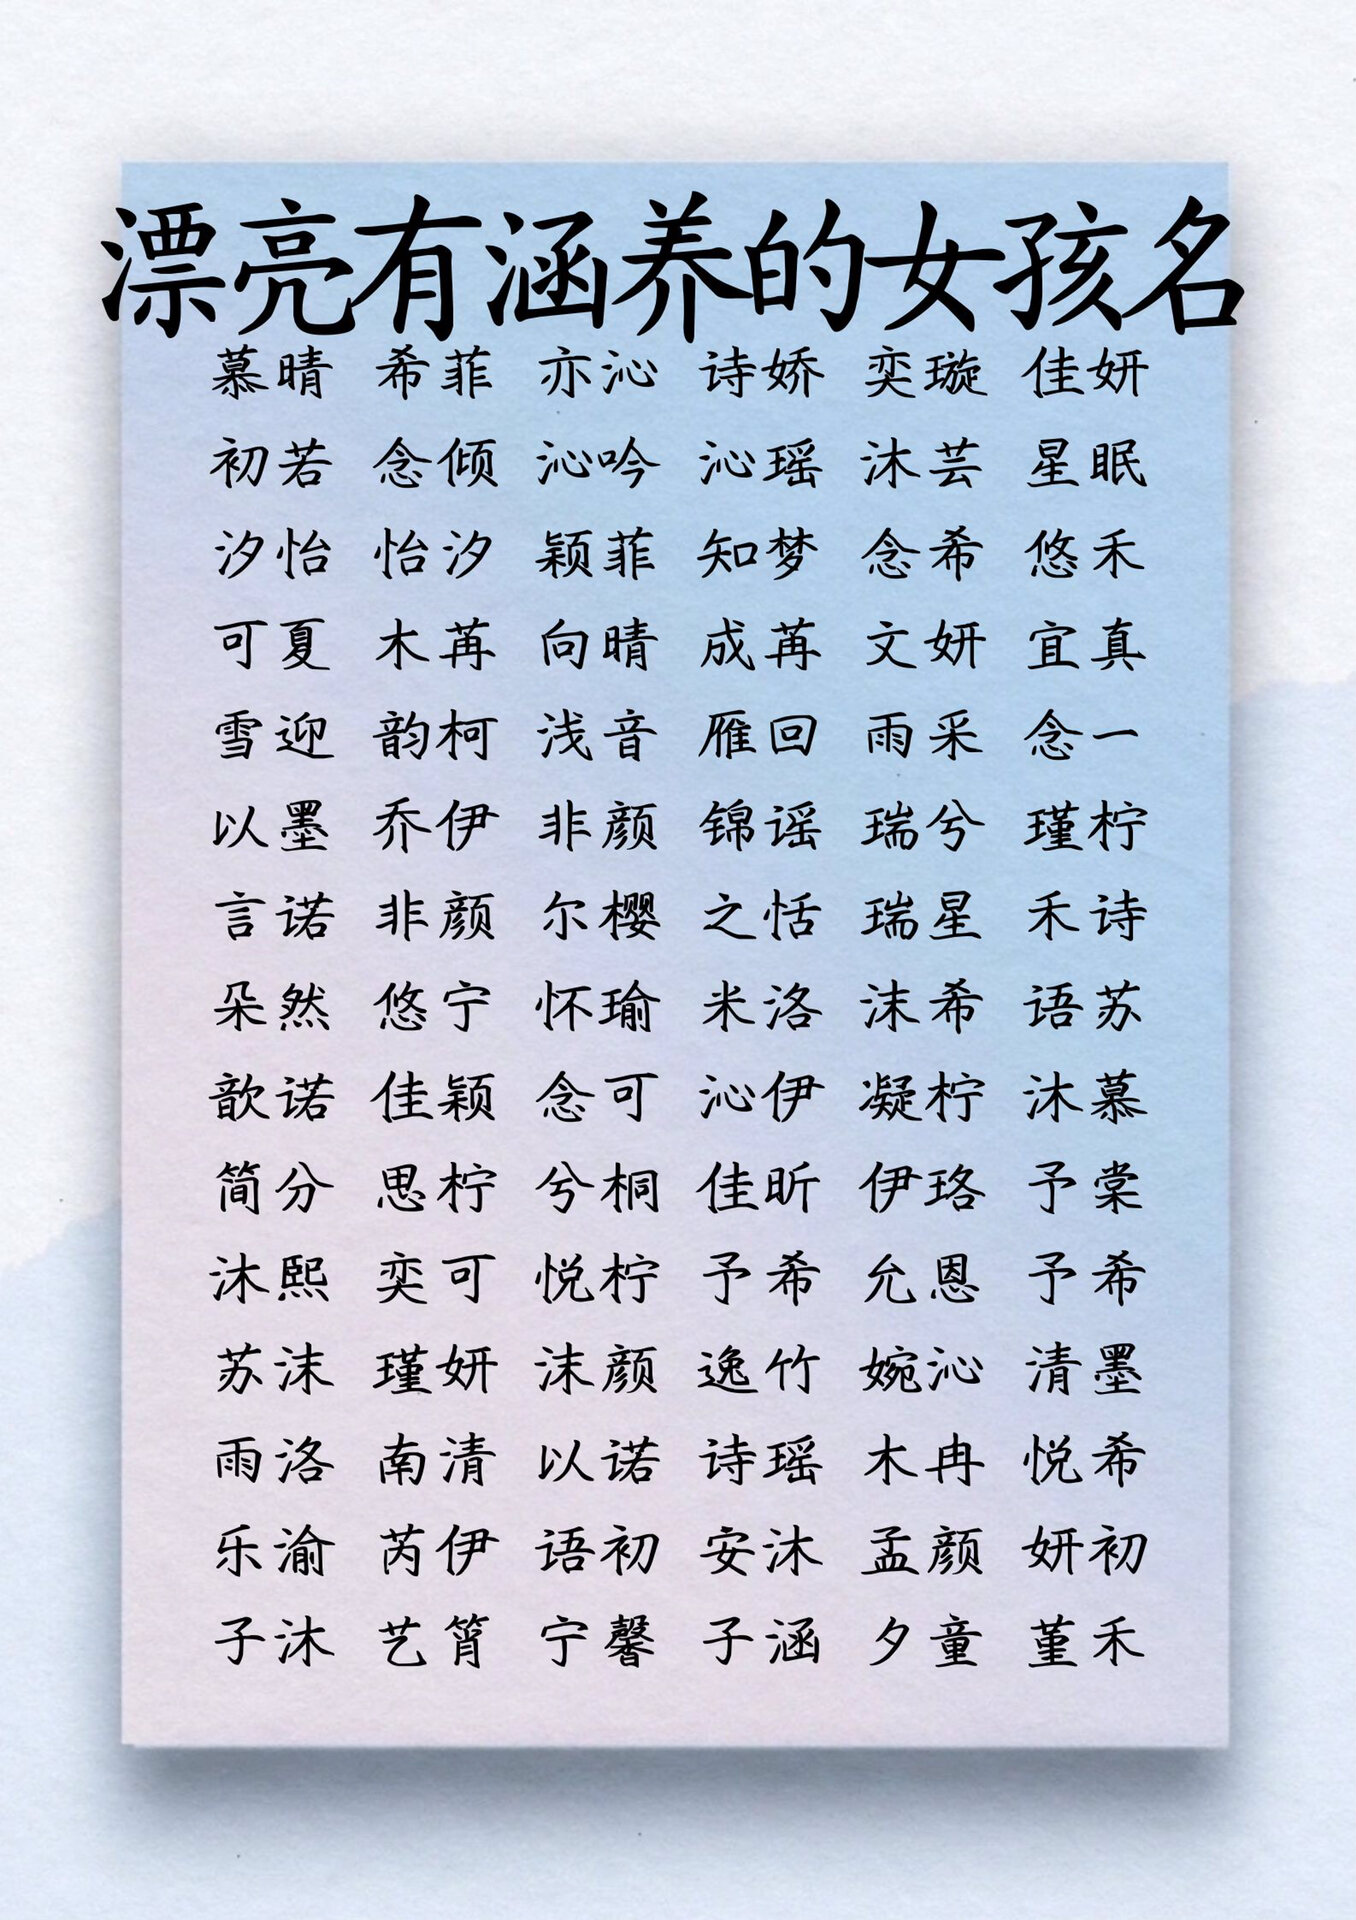 漂亮有涵养的女孩名
慕晴 希菲 亦沁 诗娇 奕璇 佳妍
初若 念倾 沁吟 沁瑶 沐芸 星眠
汐怡 怡汐 颖菲 知梦 念希 悠禾
可夏 木苒 向晴 成苒 文妍 宜真
雪迎 韵柯 浅音 雁回 雨采 念一
以墨 乔伊 非颜 锦谣 瑞兮 瑾柠
言诺 非颜 尔樱 之恬 瑞星 禾诗
朵然 悠宁 怀瑜 米洛 沫希 语苏
歆诺 佳颖 念可 沁伊 凝柠 沐慕
简分 思柠 兮桐 佳昕 伊珞 予棠
沐熙 奕可 悦柠 予希 允恩 予希
苏沫 瑾妍 沫颜 逸竹 婉沁 清墨
雨洛 南清 以诺 诗瑶 木冉 悦希
乐渝 芮伊 语初 安沐 孟颜 妍初
子沐 艺筲 宁馨 子涵 夕童 堇禾